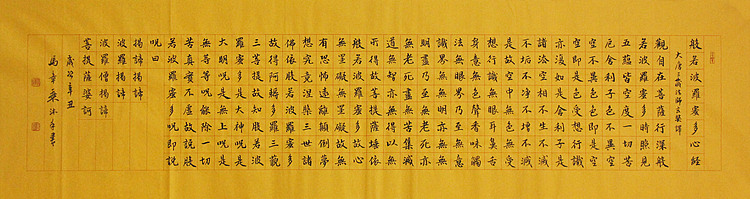 般若波羅蜜多心經
大唐三藏法師玄奘譯
觀自在菩薩行深般
若波羅蜜多時照見
五蘊皆空度一切苦
厄舍利子色不異空
空不異色色即是空
空即是色受想行識
亦復如是舍利子是
諸法空相不生不滅
不垢不淨不增不減
是故空中無色無受
想行識無眼耳鼻舌
身意無色聲香味觸
法無眼界乃至無意
識界無無明亦無無
明盡乃至無老死亦
無老死盡無苦集滅
道無智亦無得以無
所得故菩提薩埵依
般若波羅蜜多故心
無罣礙無罣礙故無
有恐怖遠離顛倒夢
想究竟涅槃三世諸
佛依般若波羅蜜多
故得阿耨多羅三藐
三菩提故知般若波
羅蜜多是大神呪是
大明呪是無上呪是
無等等呪能除一切
苦真實不虛故說般
若波羅蜜多呪即說
呪曰
揭諦揭諦
波羅揭諦
波羅僧揭諦
菩提薩婆訶
歲於辛丑
沐手書